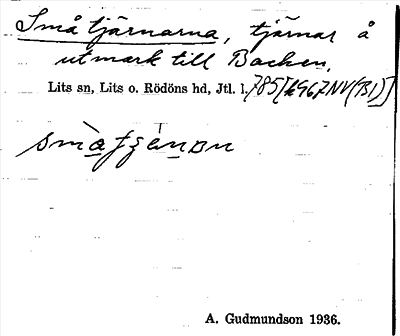 Småtjärnarna, tjärnar å
utmark till Backen.
Lits sn, Lits o. Rödöns hd, Jtl. l. 785[*967NV(BI)]
A. Gudmundson 1936.